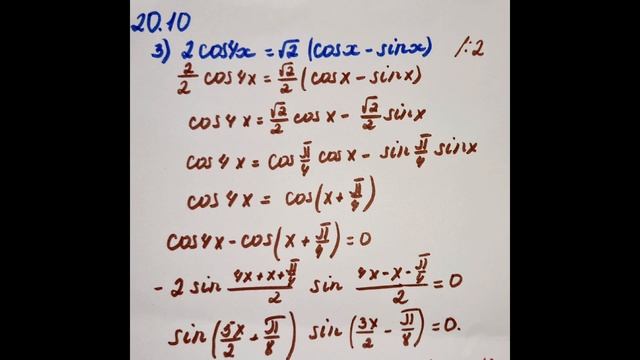 20.10
3) 2cos4x = √2 (cosx - sinx) /:2
2/2 cos4x = √2/2 (cosx - sinx)
cos4x = √2/2 cosx - √2/2 sinx
cos4x = cos π/4 cosx - sin π/4 sinx
cos4x = cos(x + π/4)
cos4x - cos(x + π/4) = 0
-2 sin (4x + x + π/4)/2 sin (4x - x - π/4)/2 = 0
sin(5x/2 + π/8) sin(3x/2 - π/8) = 0.